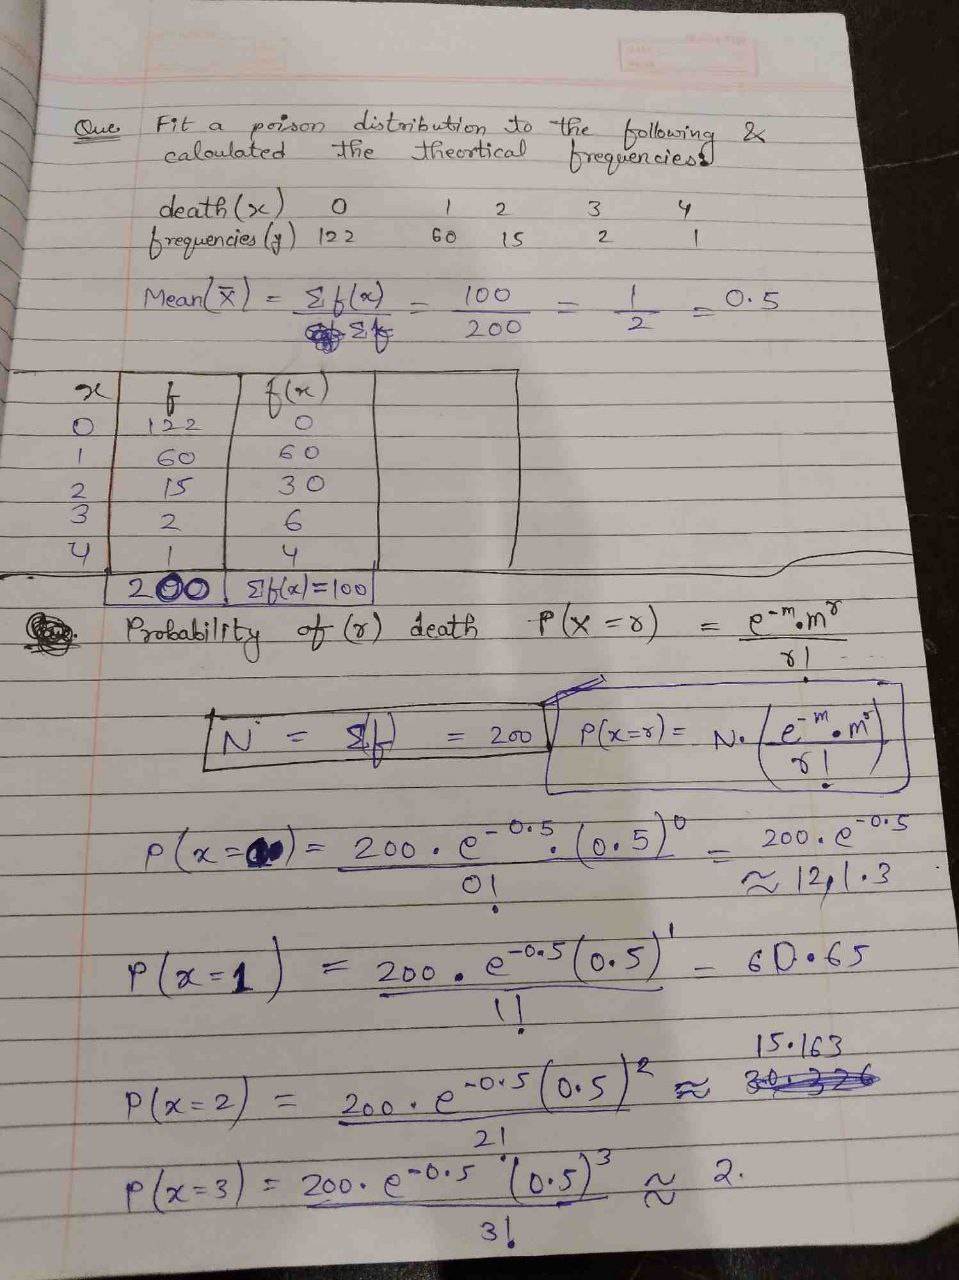 Que. Fit a poison distribution to the following &
calculated the theortical frequencies.
death (x) 0 1 2 3 4
frequencies (y) 122 60 15 2 1
Mean(x̄) = Σf(x) / Σf = 100 / 200 = 1 / 2 = 0.5
x f f(x)
0 122 0
1 60 60
2 15 30
3 2 6
4 1 4
200 Σf(x)=100
Probability of (r) death P(x = r) = e^-m . m^r / r!
N = Σf = 200 P(x=r) = N. (e^-m . m^r / r!)
P(x=0) = 200 . e^-0.5 . (0.5)^0 / 0! = 200 . e^-0.5 ≈ 121.3
P(x=1) = 200 . e^-0.5 (0.5)^1 / 1! = 60.65
P(x=2) = 200 . e^-0.5 (0.5)^2 / 2! ≈ 15.163
P(x=3) = 200. e^-0.5 (0.5)^3 / 3! ≈ 2.